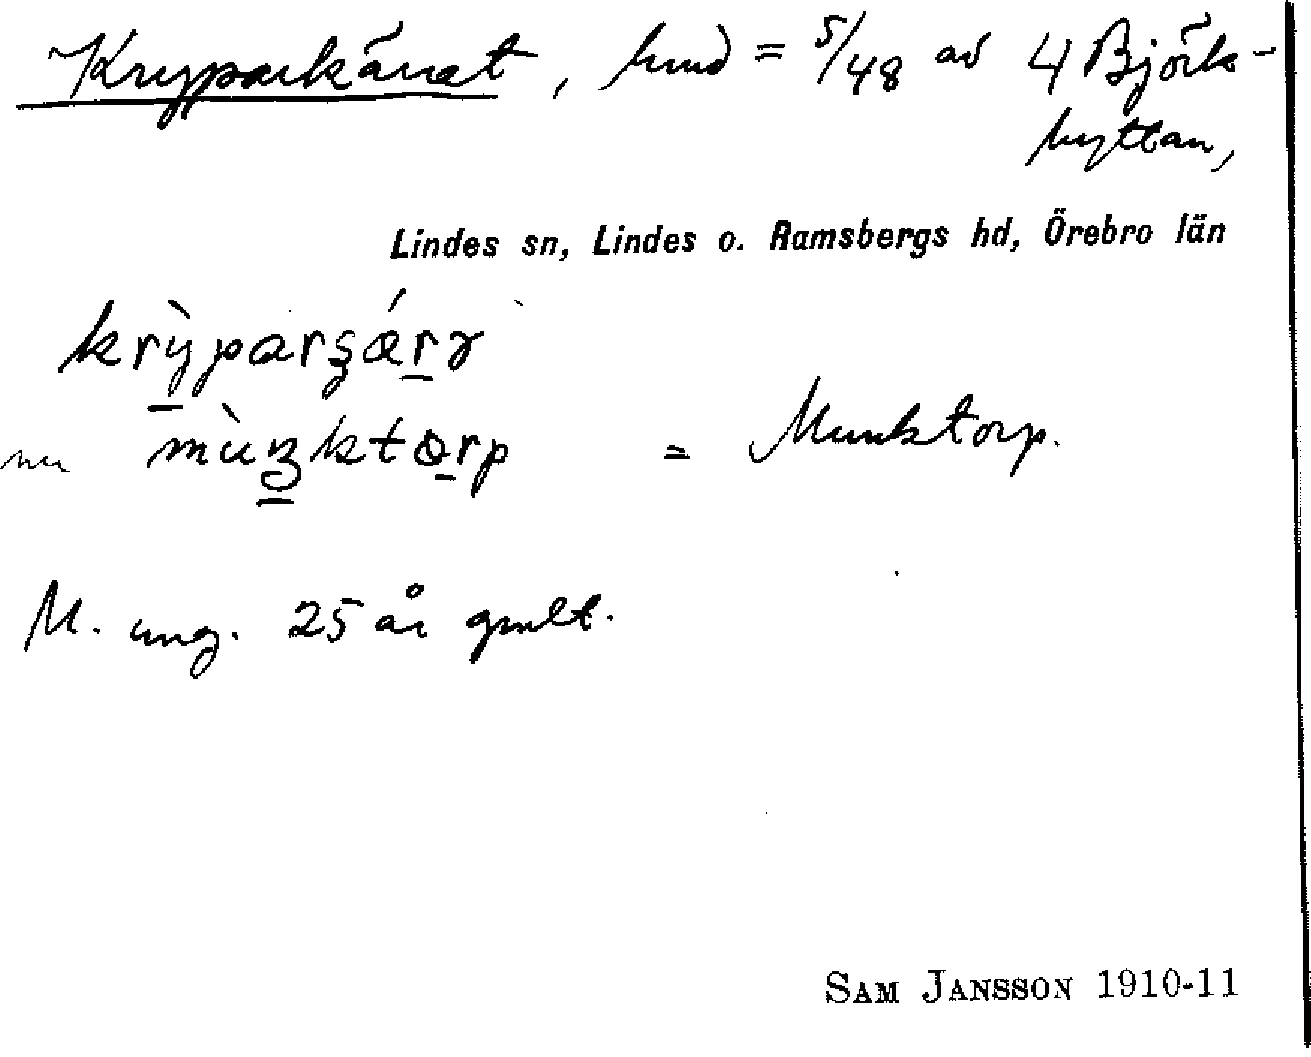 Kryparkärret, hmd = 5/48 av 4 Björk-
hyttan,
Lindes sn, Lindes o. Ramsbergs hd, Örebro län
nu = Munktorp.
M. ung. 25 år gmlt.
SAM JANSSON 1910-11